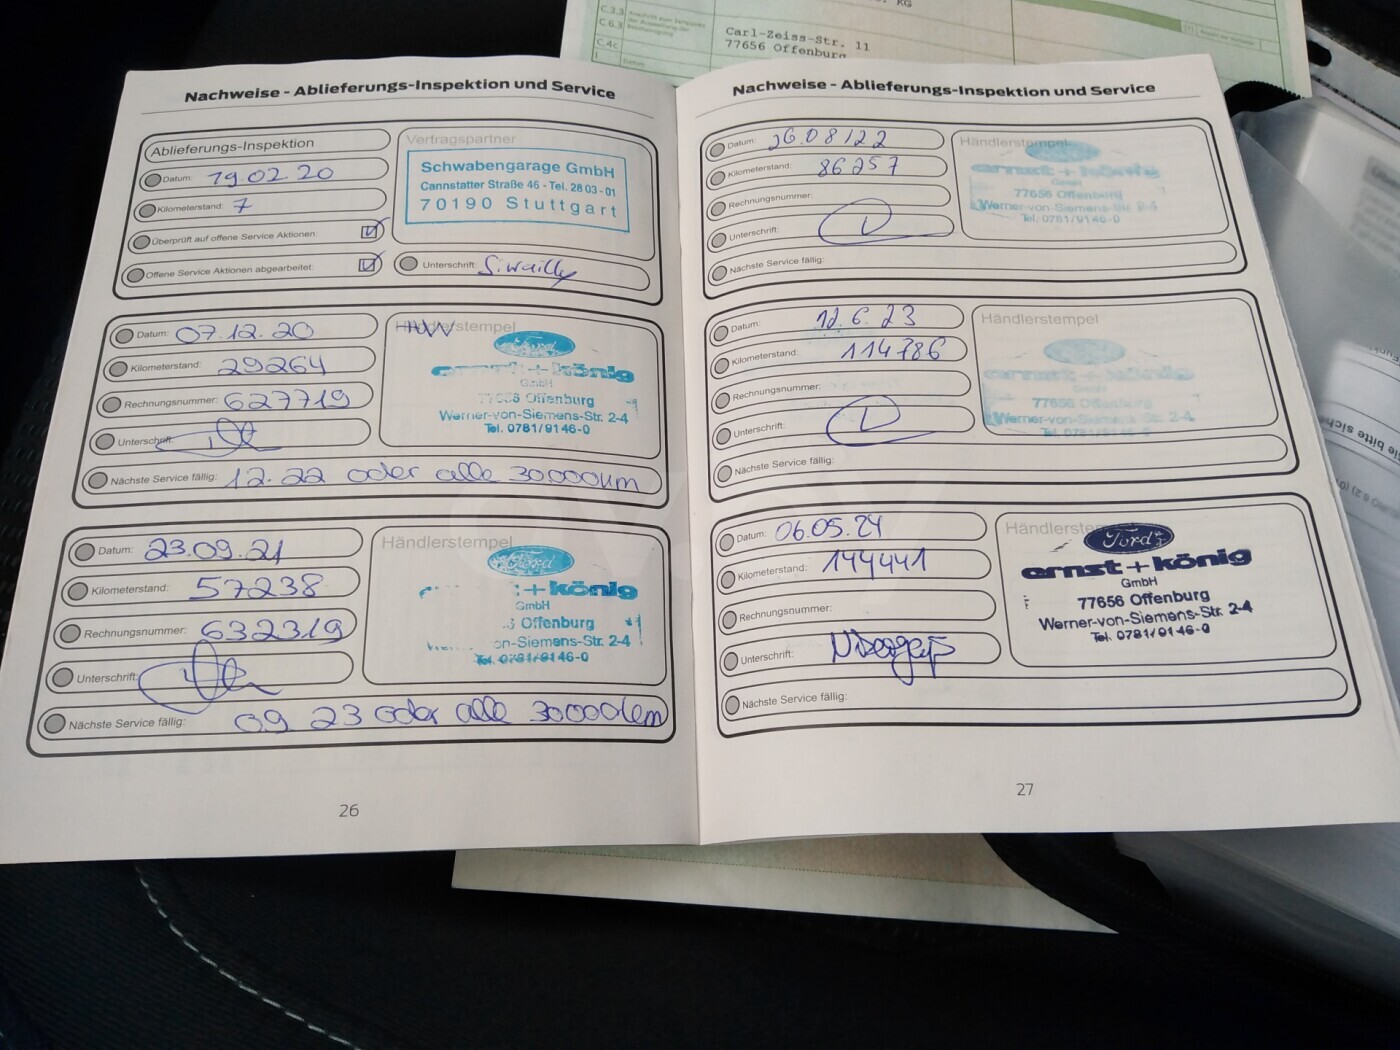 KG
C.3.3
C.6.3
C.4c
Carl-Zeiss-Str. 11
77656 Offenburg
Nachweise - Ablieferungs-Inspektion und Service
Ablieferungs-Inspektion
Datum: 19.02.20
Kilometerstand: 7
Überprüft auf offene Service Aktionen:
Offene Service Aktionen abgearbeitet:
Vertragspartner
Schwabengarage GmbH
Cannstatter Straße 46 - Tel. 28 03-01
70190 Stuttgart
Unterschrift:
Datum: 07.12.20
Kilometerstand: 29264
Rechnungsnummer: 627719
Unterschrift:
Nächste Service fällig: 12.22 oder alle 30000km
Händlerstempel
Ford
ernst+könig
GmbH
77656 Offenburg
Werner-von-Siemens-Str. 2-4
Tel. 0781/9146-0
Datum: 23.09.21
Kilometerstand: 57238
Rechnungsnummer: 632319
Unterschrift:
Nächste Service fällig: 09 23 oder alle 30000km
Händlerstempel
Ford
+könig
GmbH
Offenburg
on-Siemens-Str. 2-4
Tel. 0781/9146-0
26
Nachweise - Ablieferungs-Inspektion und Service
Datum: 26.08.22
Kilometerstand: 86257
Rechnungsnummer:
Unterschrift:
Nächste Service fällig:
Händlerstempel
ernst+könig
GmbH
77656 Offenburg
Werner-von-Siemens-Str. 2-4
Tel. 0781/9146-0
Datum: 12.6.23
Kilometerstand: 114786
Rechnungsnummer:
Unterschrift:
Nächste Service fällig:
Händlerstempel
ernst+könig
77656 Offenburg
Werner-von-Siemens-Str. 2-4
Tel. 0781/9146-0
Datum: 06.05.24
Kilometerstand: 144441
Rechnungsnummer:
Unterschrift:
Nächste Service fällig:
Händlerstempel
Ford
ernst+könig
GmbH
77656 Offenburg
Werner-von-Siemens-Str. 2-4
Tel. 0781/9146-0
27